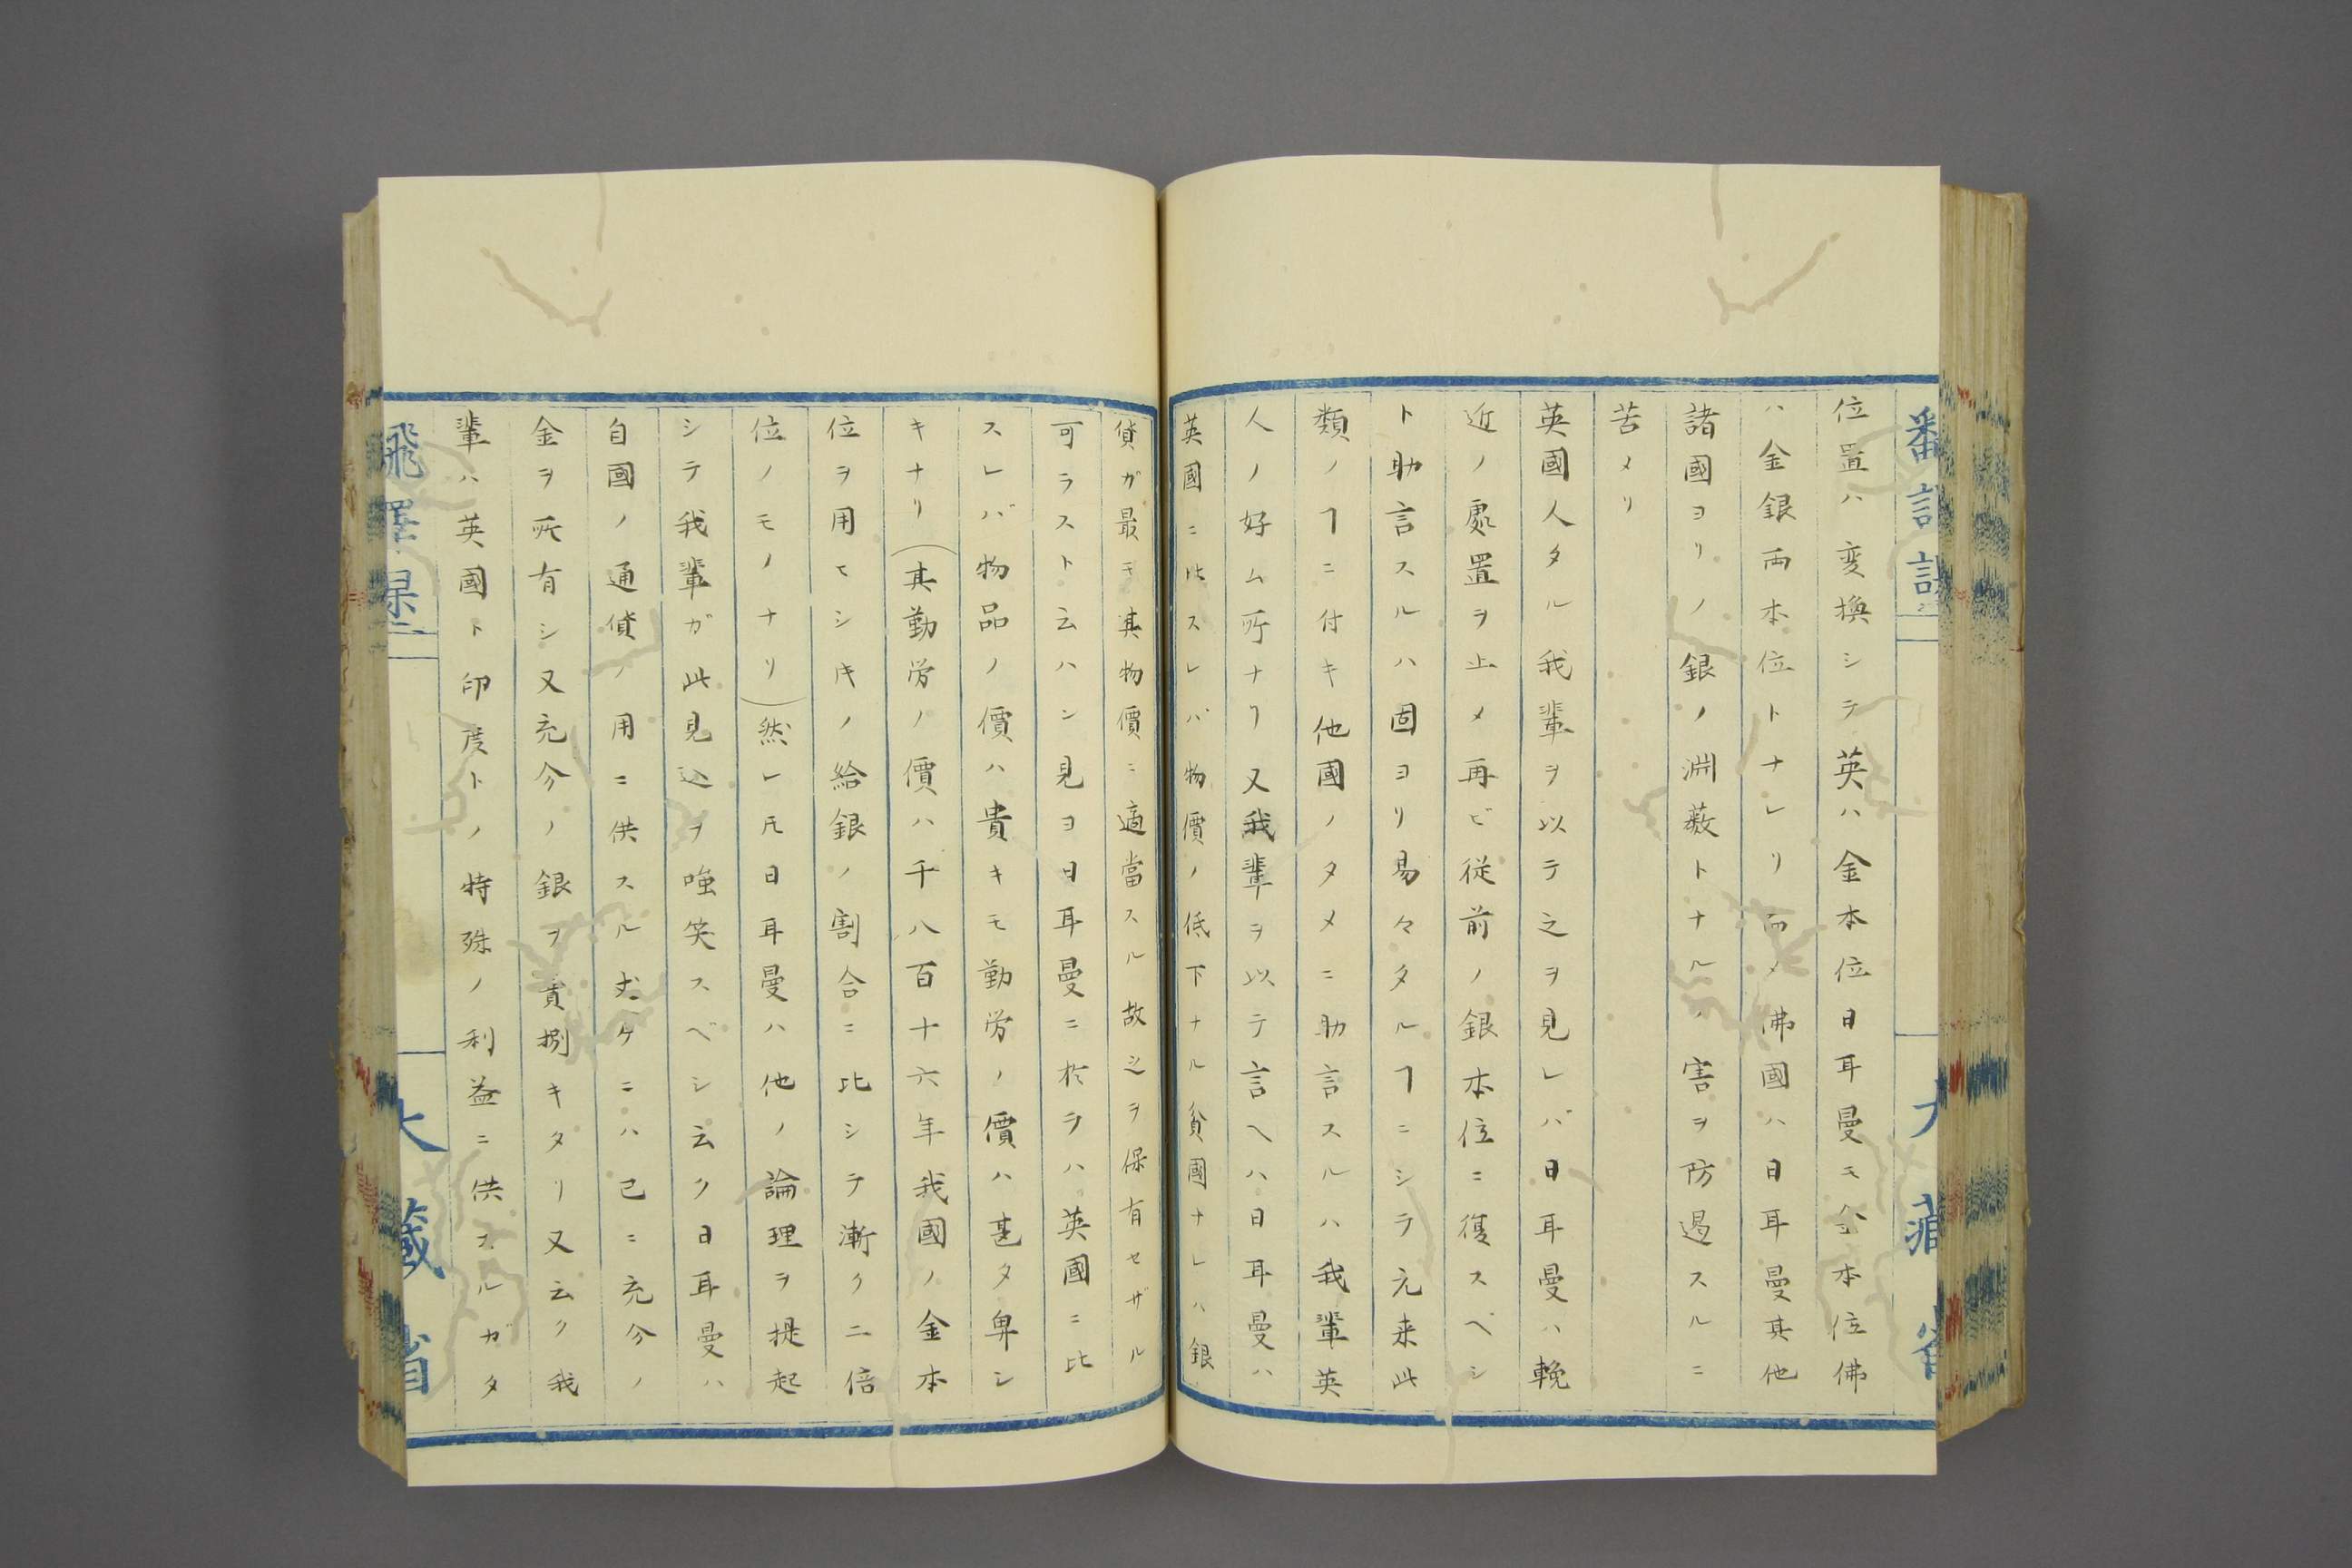 位置ハ変換シテ英ハ金本位日耳曼モ金本位佛
ハ金銀両本位トナレリ而メ佛國ハ日耳曼其他
諸國ヨリノ銀ノ淵薮トナルノ害ヲ防遏スルニ
苦メリ
英國人タル我輩ヲ以テ之ヲ見レバ日耳曼ハ輓
近ノ處置ヲ止メ再ビ従前ノ銀本位ニ復スベシ
ト助言スルハ固ヨリ易々タルヿニシテ元来此
類ノヿニ付キ他國ノタメニ助言スルハ我輩英
人ノ好ム所ナリ又我輩ヲ以テ言ヘハ日耳曼ハ
英國ニ比スレバ物價ノ低下ナル貧國ナレハ銀
貨ガ最モ其物價ニ適當スル故之ヲ保有セザル
可ラスト云ハン見ヨ日耳曼ニ於ラハ英國ニ比
スレバ物品ノ價ハ貴キモ勤労ノ價ハ甚タ卑シ
キナリ(其勤労ノ價ハ千八百十六年我國ノ金本
位ヲ用ヒシ片ノ給銀ノ割合ニ比シテ漸ク二倍
位ノモノナリ)然レ𪜈日耳曼ハ他ノ論理ヲ提起
シテ我輩ガ此見込ヲ嗤笑スベシ云ク日耳曼ハ
自國ノ通貨ノ用ニ供スル丈ケニハ已ニ充分ノ
金ヲ所有シ又充分ノ銀ヲ賣捌キタリ又云ク我
輩ハ英國ト印度トノ特殊ノ利益ニ供スルガタ
飛 課 大藏省